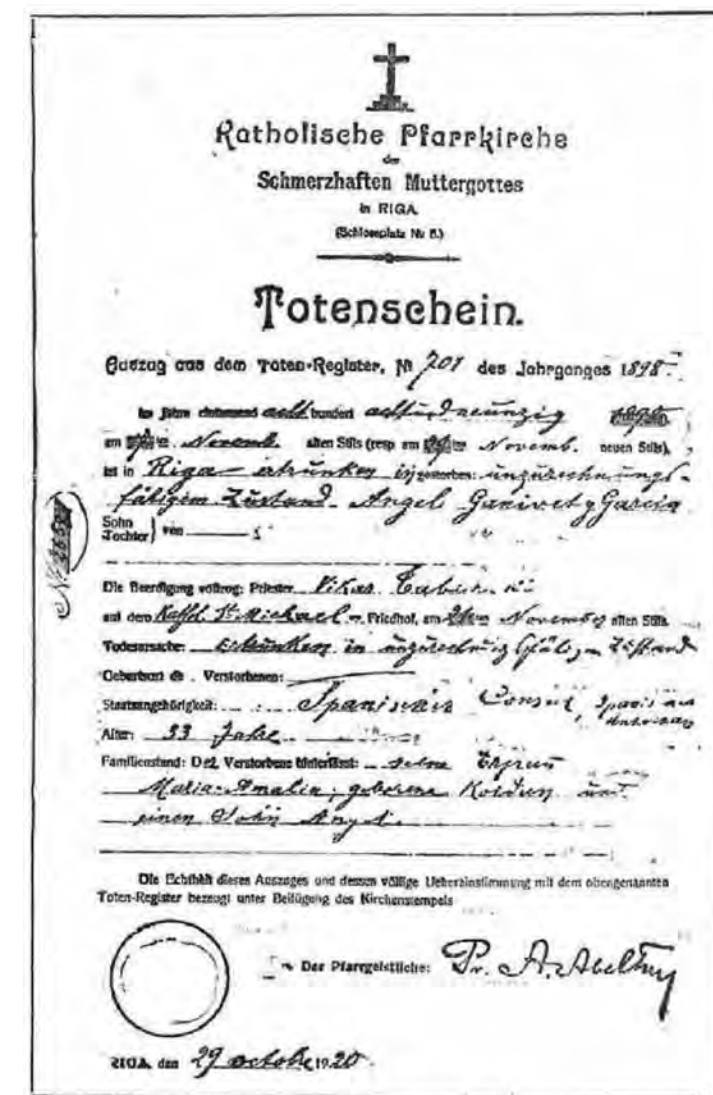 Katholische Pfarrkirche
der
Schmerzhaften Muttergottes
in RIGA
(Schlossplatz № 5.)
Totenschein.
Auszug aus dem Toten-Register, № 701 des Jahrganges 1898
Im Jahre eintausend acht hundert achtundneunzig
am Novemb. alten Stils (resp am Novemb. neuen Stils),
ist in Riga ertrunken in gestorben: unzurechnungs-
fähigem Zustand Angel Ganivet y Garcia
Sohn
Tochter } von
Die Beerdigung vollzog: Priester Vikar
auf dem Kathol. St. Michael Friedhof, am November alten Stils
Todesursache: ertrunken in Zustand
Geburtsort de Verstorbenen:
Staatsangehörigkeit: Spanischer Consul,
Alter: 33 Jahre
Familienstand: Der Verstorbene hinterlässt: seine
Maria-Amalia, geborene und
einen Sohn Angel
Die Echtheit dieses Auszuges und dessen völlige Uebereinstimmung mit dem obengenannten
Toten-Register bezeugt unter Beifügung des Kirchenstempels
Der Pfarrgeistliche: Pr. A.
RIGA, den 29 octobre 1920.